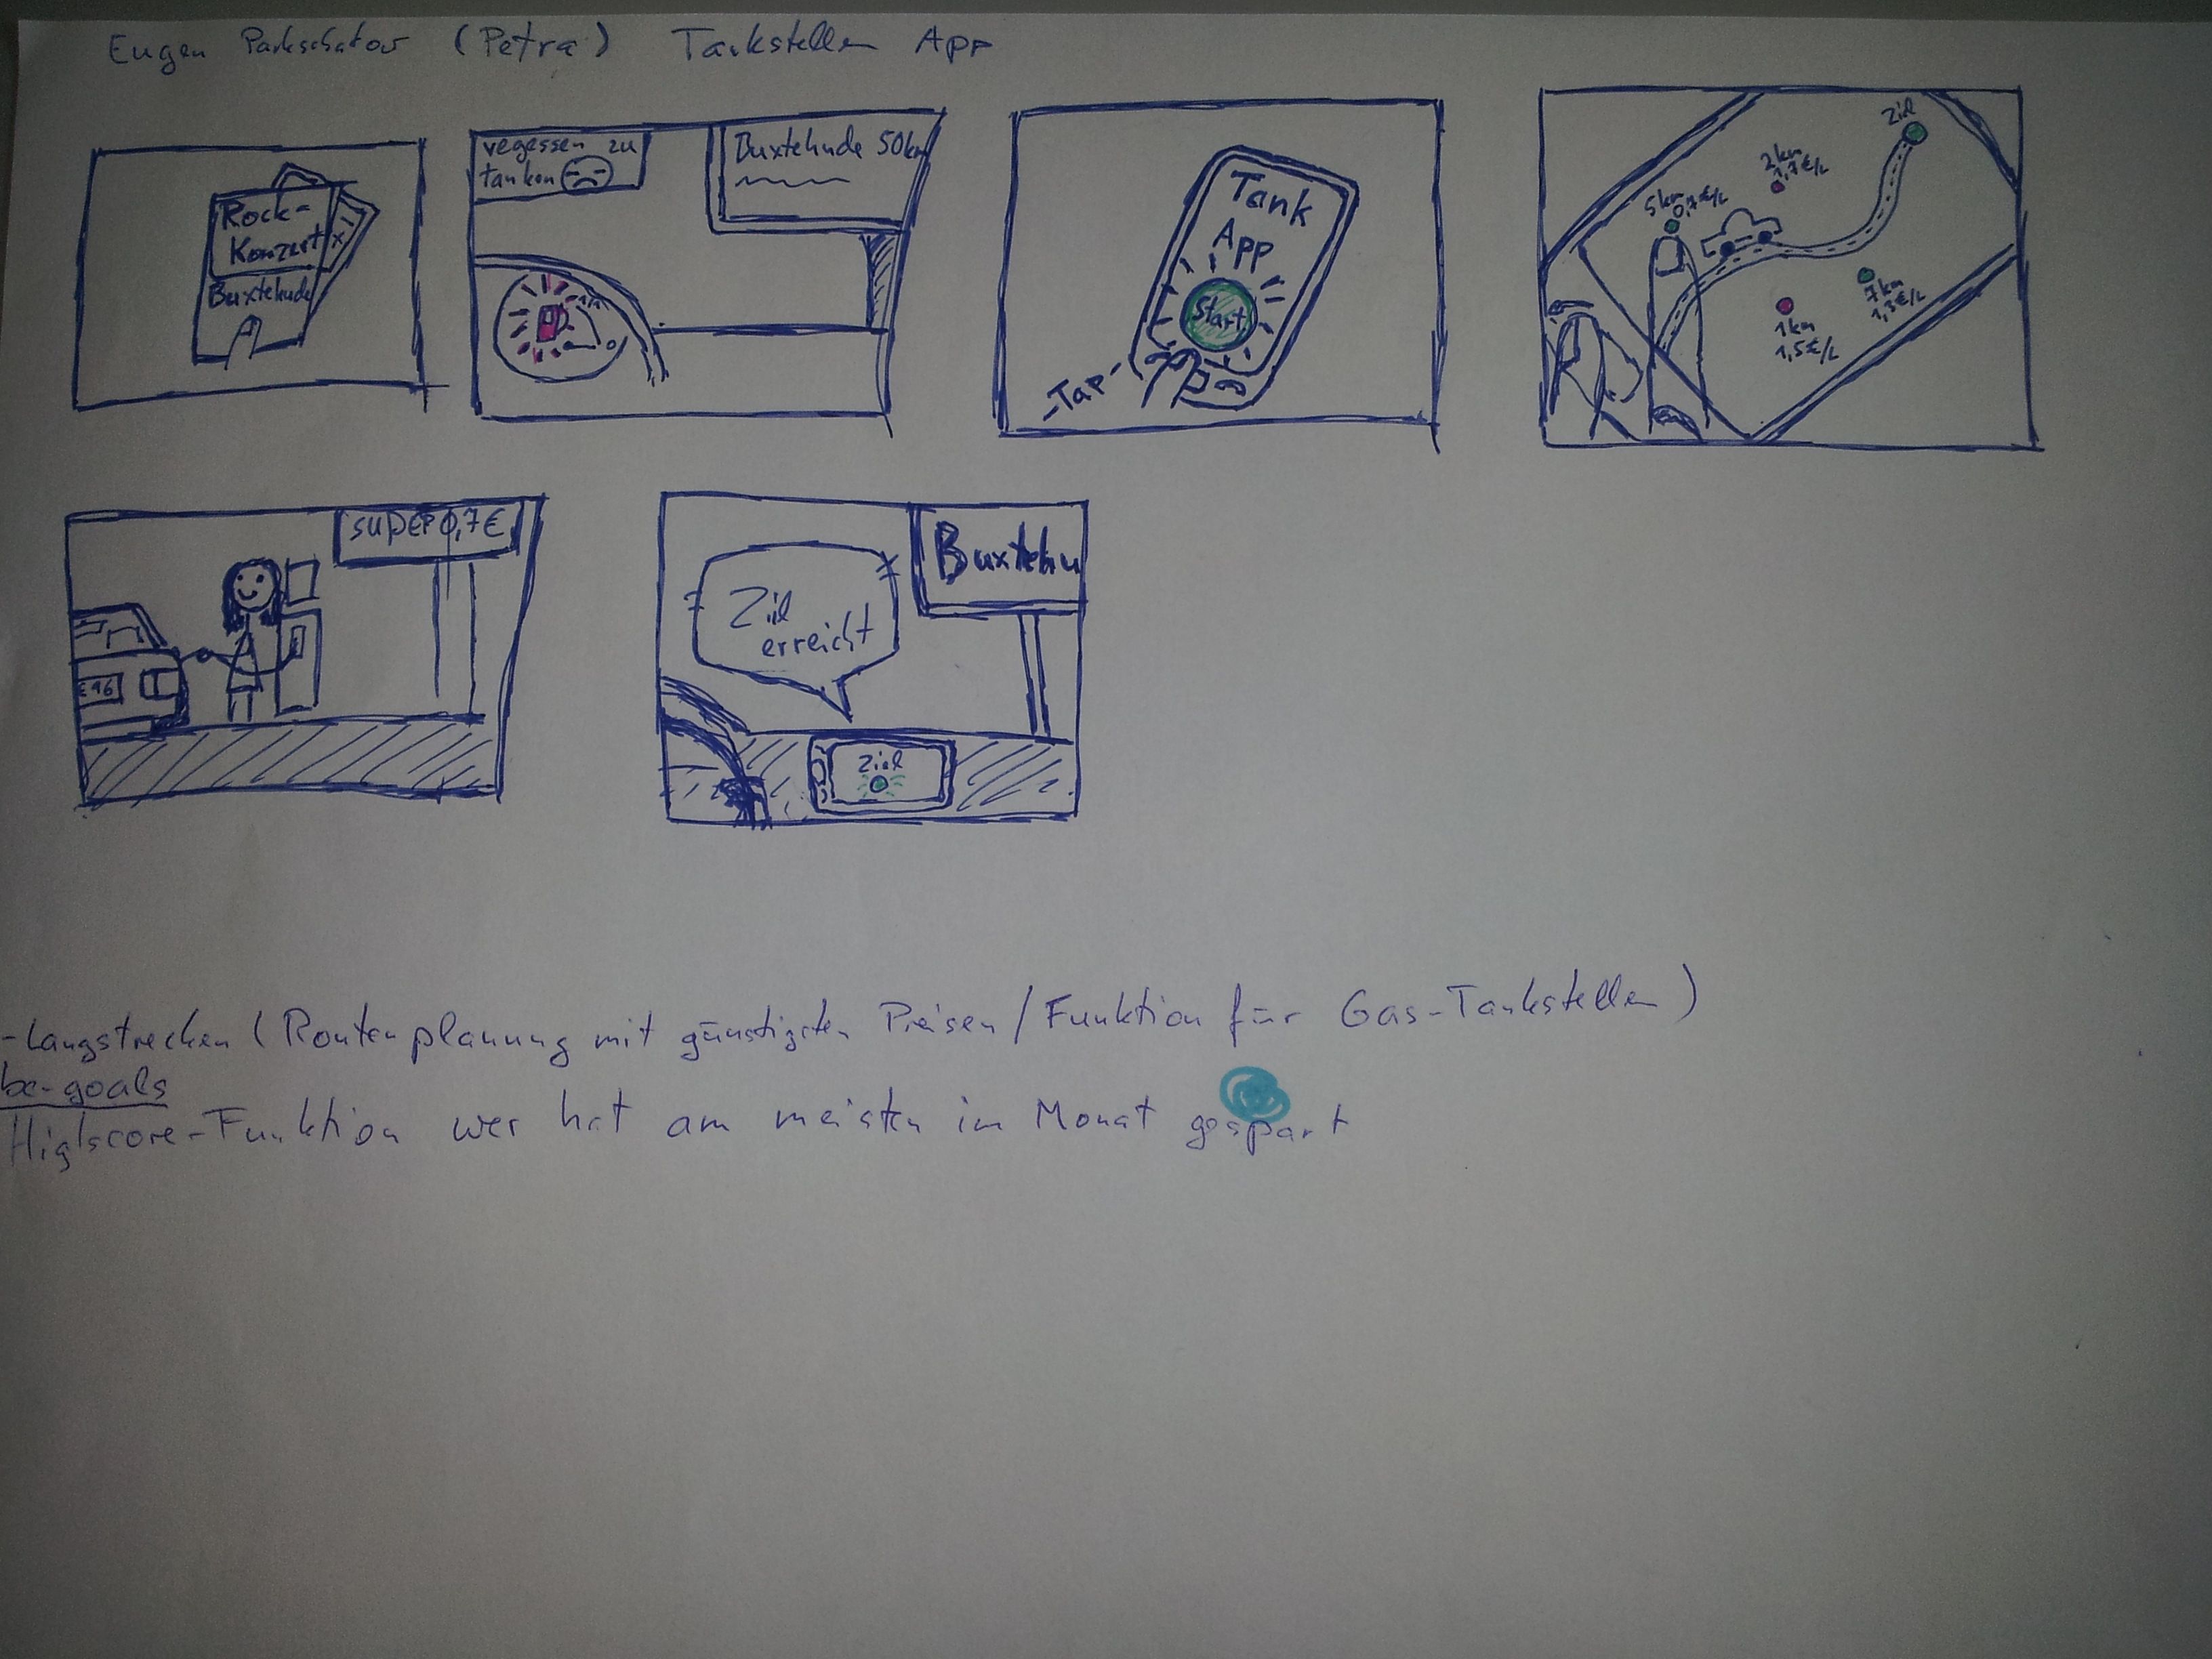 Eugen (Petra) Tankstellen App
Rock-
Konzert
Buxtehude
vegessen zu
tanken
Buxtehude 50km
Tank
App
Start
-Tap-
Ziel
2km
1,7€/L
5km
0,7€/L
7km
1,3€/L
1km
1,5€/L
super 0,7€
E96
Ziel
erreicht
Buxtehu
Ziel
-Langstrecken (Routenplanung mit günstigsten Preisen/Funktion für Gas-Tankstellen)
be-goals
Highscore-Funktion wer hat am meisten im Monat gespart